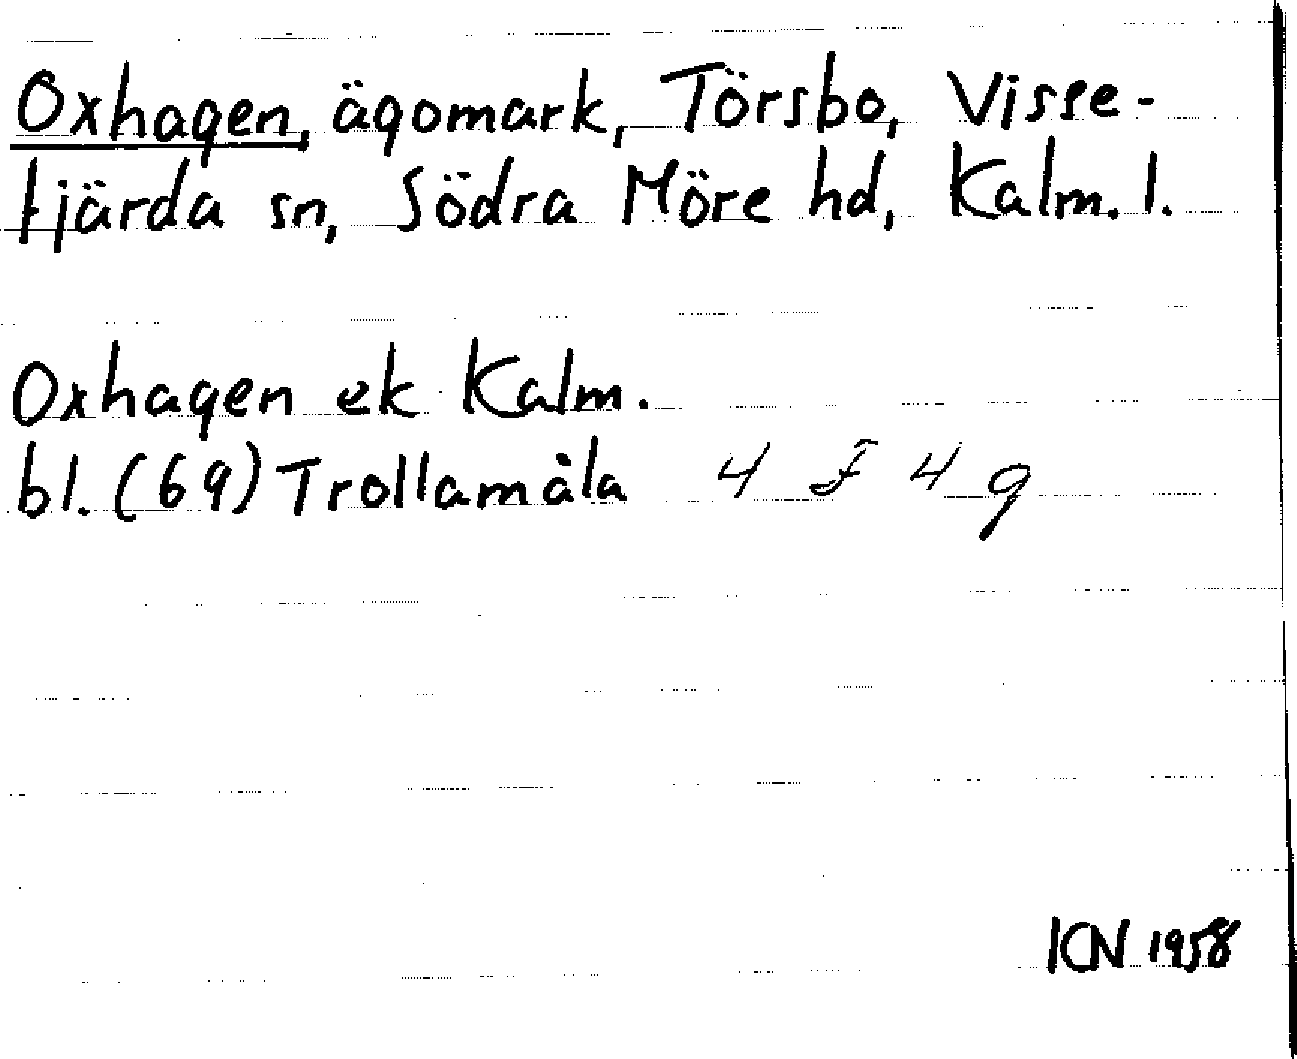 Oxhagen, ägomark, Törsbo, Visse-
fjärda sn, Södra Möre hd, Kalm. l.
Oxhagen ek Kalm.
bl. (69) Trollamåla 4 F 4 g
ICN 1958